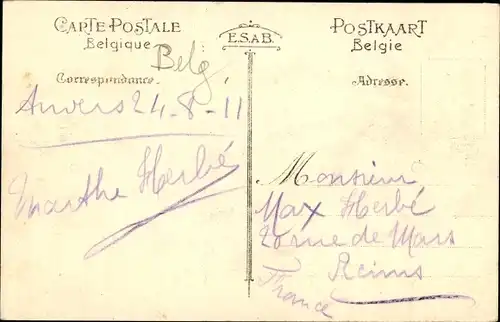 CARTE POSTALE
Belgique
E.S.A.B.
POSTKAART
Belgie
Belg
Correspondance.
Adresse.
Anvers 24-8-11
Marthe Herbé
Monsieur
Max Herbé
rue de Mars
Reims
France